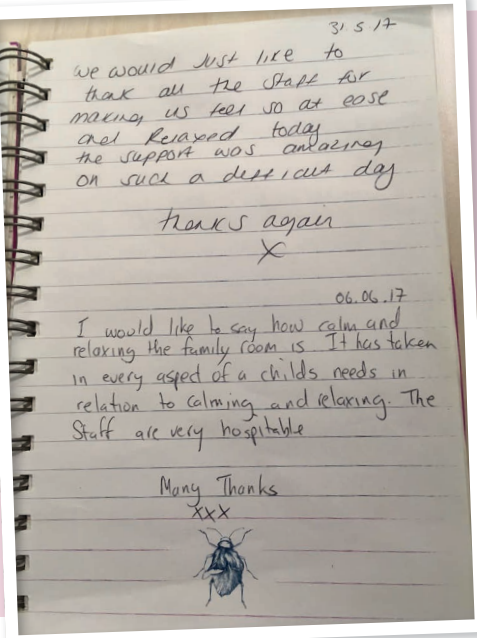 31.5.17
we would Just like to
thank all the staff for
making us feel so at ease
and Relaxed today
the support was amazing
on such a difficult day
thanks again
X
06.06.17
I would like to say how calm and
relaxing the family room is It has taken
in every aspect of a childs needs in
relation to calming and relaxing. The
Staff are very hospitable
Many Thanks
xxx